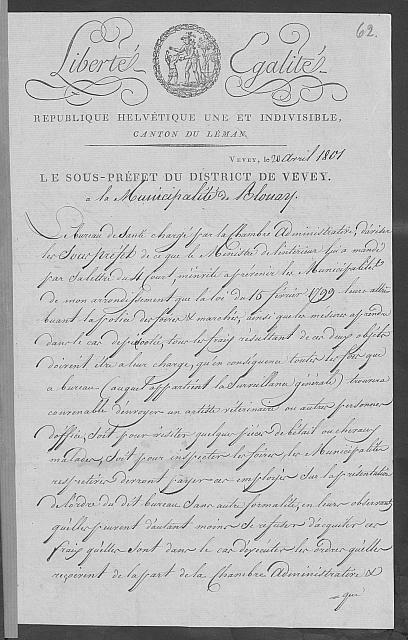 62.
Liberté Egalité
REPUBLIQUE HELVÉTIQUE UNE ET INDIVISIBLE,
CANTON DU LÉMAN,
VEVEY, le 20 avril 1801
LE SOUS-PRÉFET DU DISTRICT DE VEVEY.
à la Municipalité de Blonay.
Le bureau de Santé chargé par la Chambre Administrative, d'aviser
les Sous préfet de ce que le Ministre de l'intérieur lui a mandé
par sa lettre du 4 Court m'invite a prevenir les Municipalités
de mon arrondissement que la loi du 15 février 1799 leurs attri
buant la police des foires & marchés, ainsi que les mesures a prendre
dans le cas d'epizootie, tous les frais resultant de ces deux objets
doivent être a leur charge, qu'en consequence toutes les fois que
ce bureau (auquel appartient la Surveillance générale) trouvera
convenable d'envoyer un artiste vétérinaire ou autres personnes
d'office, soit pour visiter quelque pièces de bétail ou chevaux
malades, soit pour inspecter les foires, les Municipalités
respectives devront payer ces employés Sur la présentation
de l'ordre du dit bureau Sans autre formalité, en leurs observant
qu'elles peuvent d'autant moins Se refuser d'acquitter ces
frais qu'elles sont dans le cas d'executer les ordres qu'elles
reçoivent de la part de la Chambre Administrative &
que